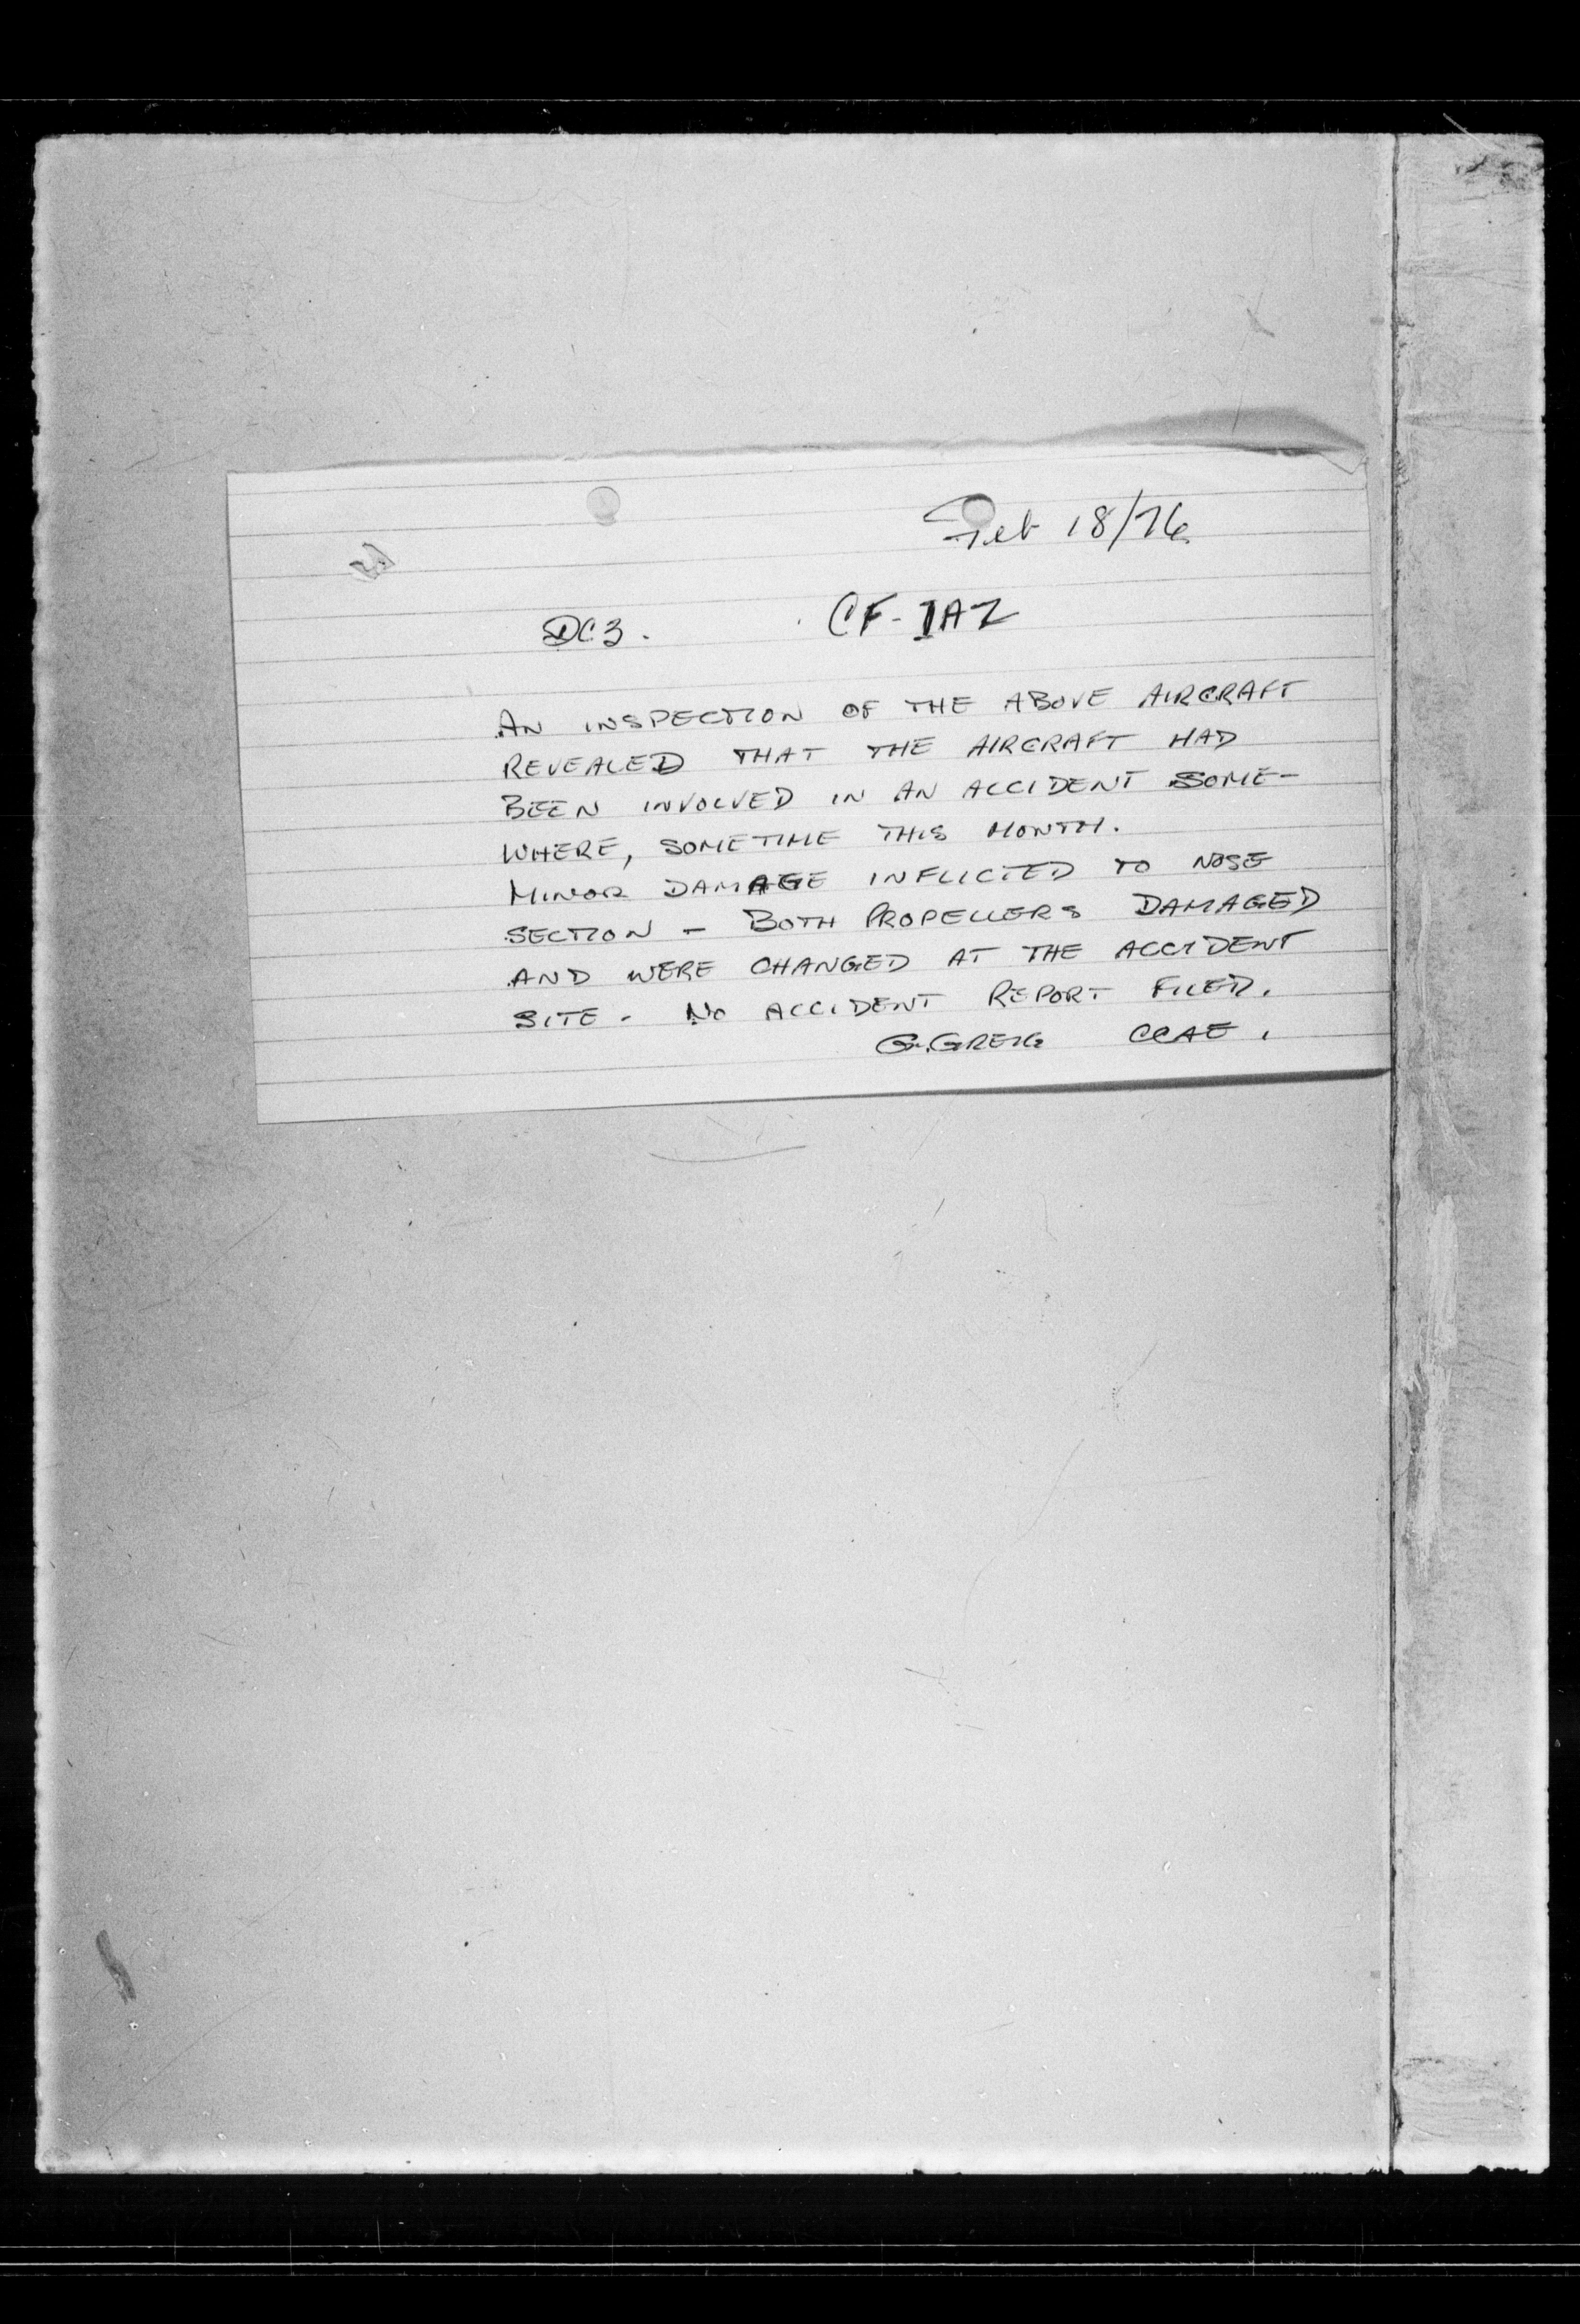 Feb 18/76
DC3. CF-IAZ
AN INSPECTION OF THE ABOVE AIRCRAFT
REVEALED THAT THE AIRCRAFT HAD
BEEN INVOLVED IN AN ACCIDENT SOME-
WHERE, SOMETIME THIS MONTH.
MINOR DAMAGE INFLICTED TO NOSE
SECTION - BOTH PROPELLERS DAMAGED
AND WERE CHANGED AT THE ACCIDENT
SITE. NO ACCIDENT REPORT FILED.
G.GREIG CCAE.